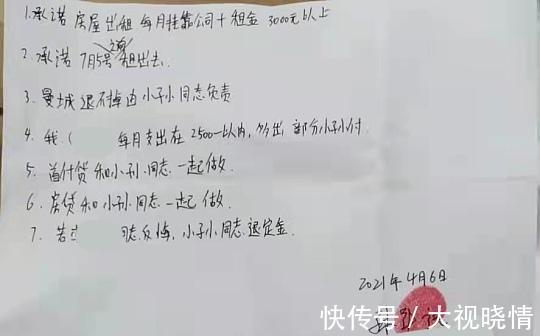 1.承诺 房屋出租 每月挂靠公司+租金 3000元以上
2.承诺 7月5号之前租出去.
3.曼城 退不掉由小孙同志负责
4.我( 每月支出在2500以内,多出部分小孙付.
5.首付贷和小孙同志一起做
6.房贷和小孙同志一起做.
7.若 反悔,小孙同志退定金.
2021年4月6日
快传号/大视晓情